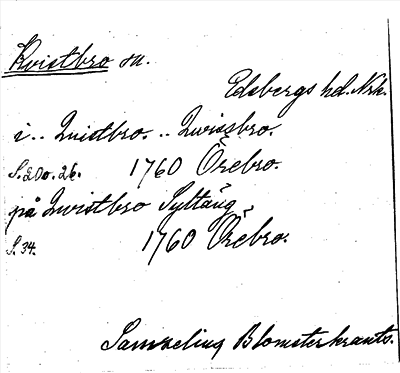 Kvistbro sn.
Edsbergs hd. Nrk.
i.. Quistbro... Qwissbro.
S. 200. 26. 1760 Örebro.
på Qwistbro Syltäng
S. 34. 1760 Örebro.
Samueling Blomsterkrants.